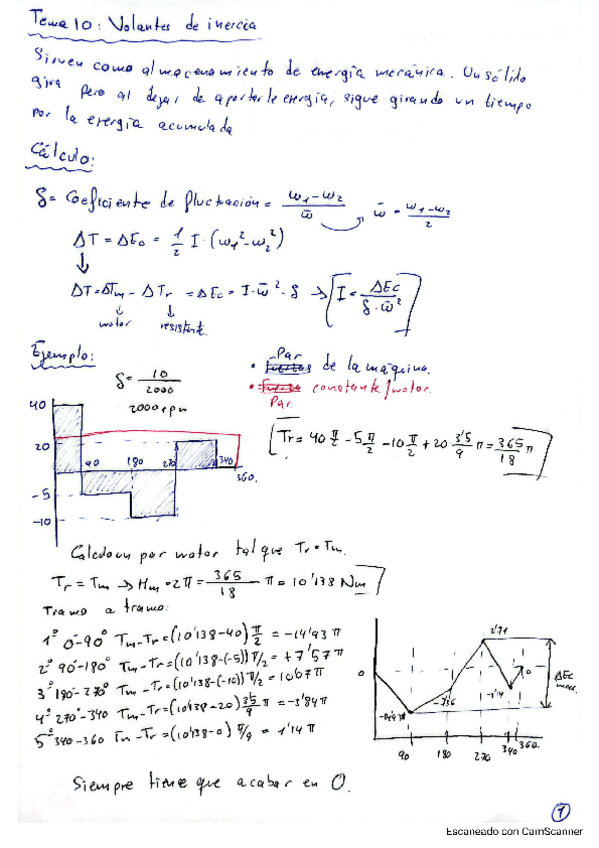 Tema 10: Volantes de inercia
Sirven como almacenamiento de energía mecánica. Un sólido
gira pero al dejar de aportarle energía, sigue girando un tiempo
por la energía acumulada
Cálculo:
δ = Coeficiente de fluctuación = (ω1-ω2)/ω̄ → ω̄ = (ω1-ω2)/2
ΔT = ΔEc = 1/2 I · (ω1²-ω2²)
↓
ΔT = ΔTm - ΔTr = ΔEc = I·ω̄²·δ → I = ΔEc/(δ·ω̄²)
motor resistente.
Ejemplo:
δ = 10/2000
2000 rpm
• Par de la máquina.
• constante/motor.
Par
Tr = 40 π/2 - 5 π/2 - 10 π/2 + 20 3'5/9 π = 365/18 π
40
20
-5
-10
90 180 270 340
360.
Calculo un par motor tal que Tr = Tm.
Tr = Tm → Mm · 2π = 365/18 π = 10'138 Nm
Tramo a tramo:
1º 0-90º Tm-Tr = (10'138-40) π/2 = -14'93 π
2º 90-180º Tm-Tr = (10'138-(-5)) π/2 = +7'57 π
3º 180-270º Tm-Tr = (10'138-(-10)) π/2 = 10'07 π
4º 270-340 Tm-Tr = (10'138-20) 3'5/9 π = -3'84 π
5º 340-360 Tm-Tr = (10'138-0) π/9 = 1'14 π
0
-14'93
-7'36
2'71
-1'14
0
ΔEc
max.
90 180 270 340 360.
Siempre tiene que acabar en 0.
1
Escaneado con CamScanner